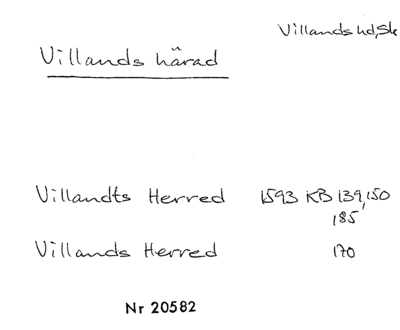 Villands hd, Sk
Villands härad
Villandts Herred 1593 KB 139, 150
185
Villands Herred 170
Nr 20582